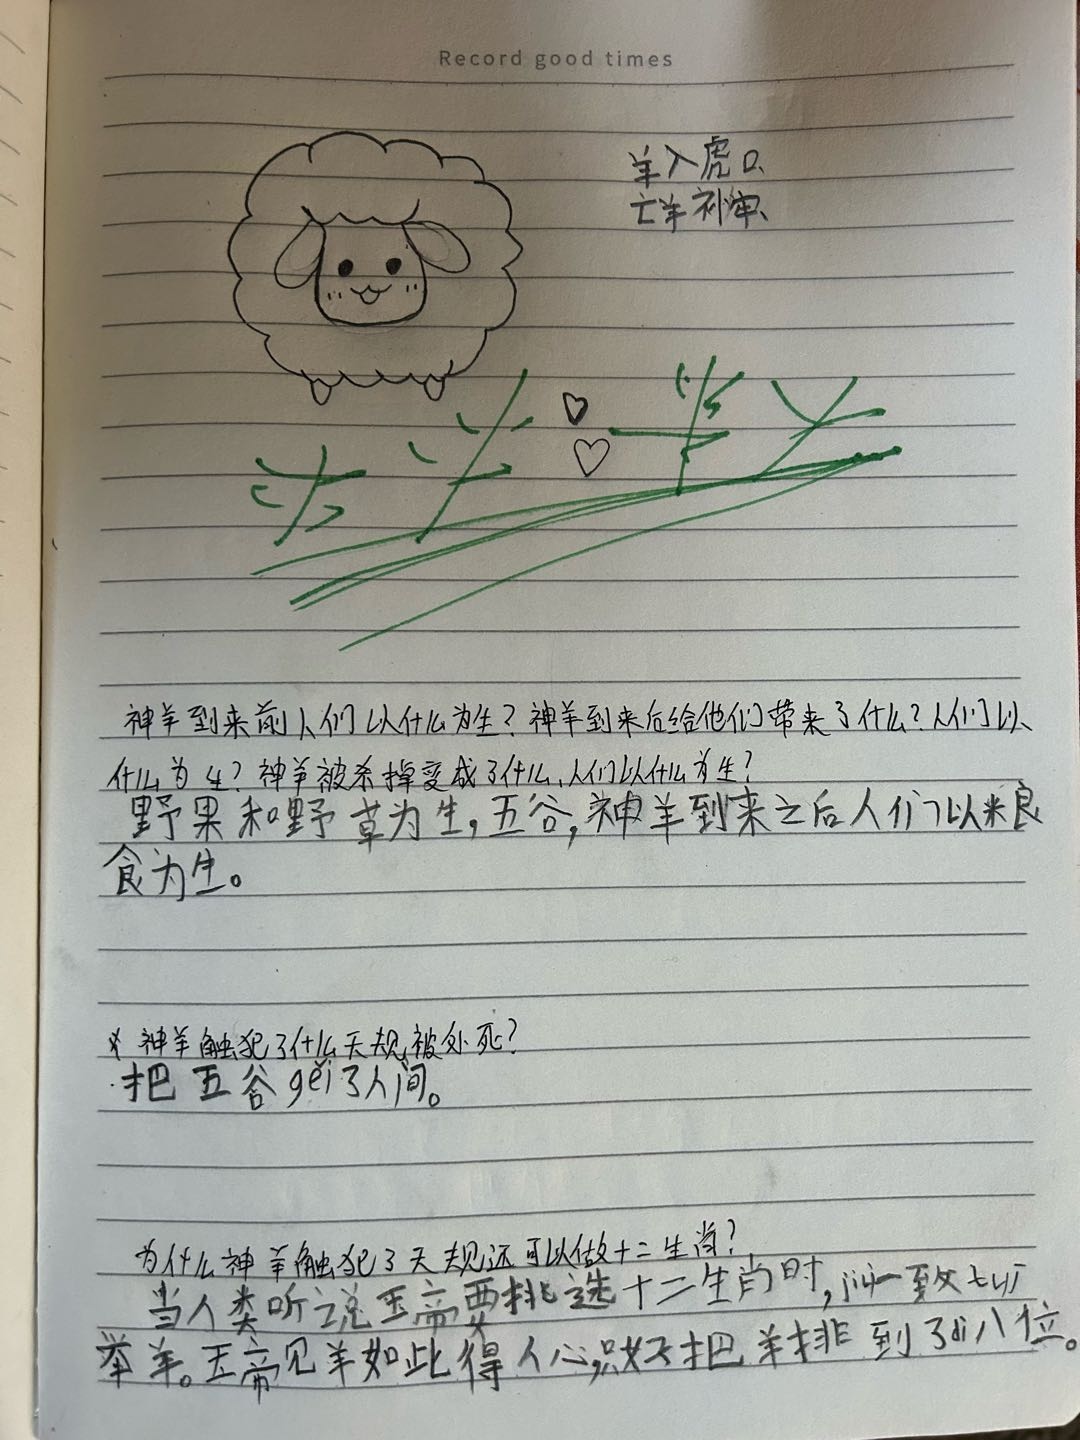 Record good times
羊入虎口、
亡羊补牢、
神羊到来前人们以什么为生？神羊到来后给他们带来了什么？人们以
什么为生？神羊被杀掉变成了什么，人们以什么为生？
野果和野草为生，五谷，神羊到来之后人们以米良
食为生。
神羊触犯了什么天规，被处死？
·把五谷gěi了人间。
为什么神羊触犯了天规还可以做十二生肖？
当人类听说玉帝要挑选十二生肖时，一致
举羊。玉帝见羊如此得人心，只好把羊排到了dì八位。